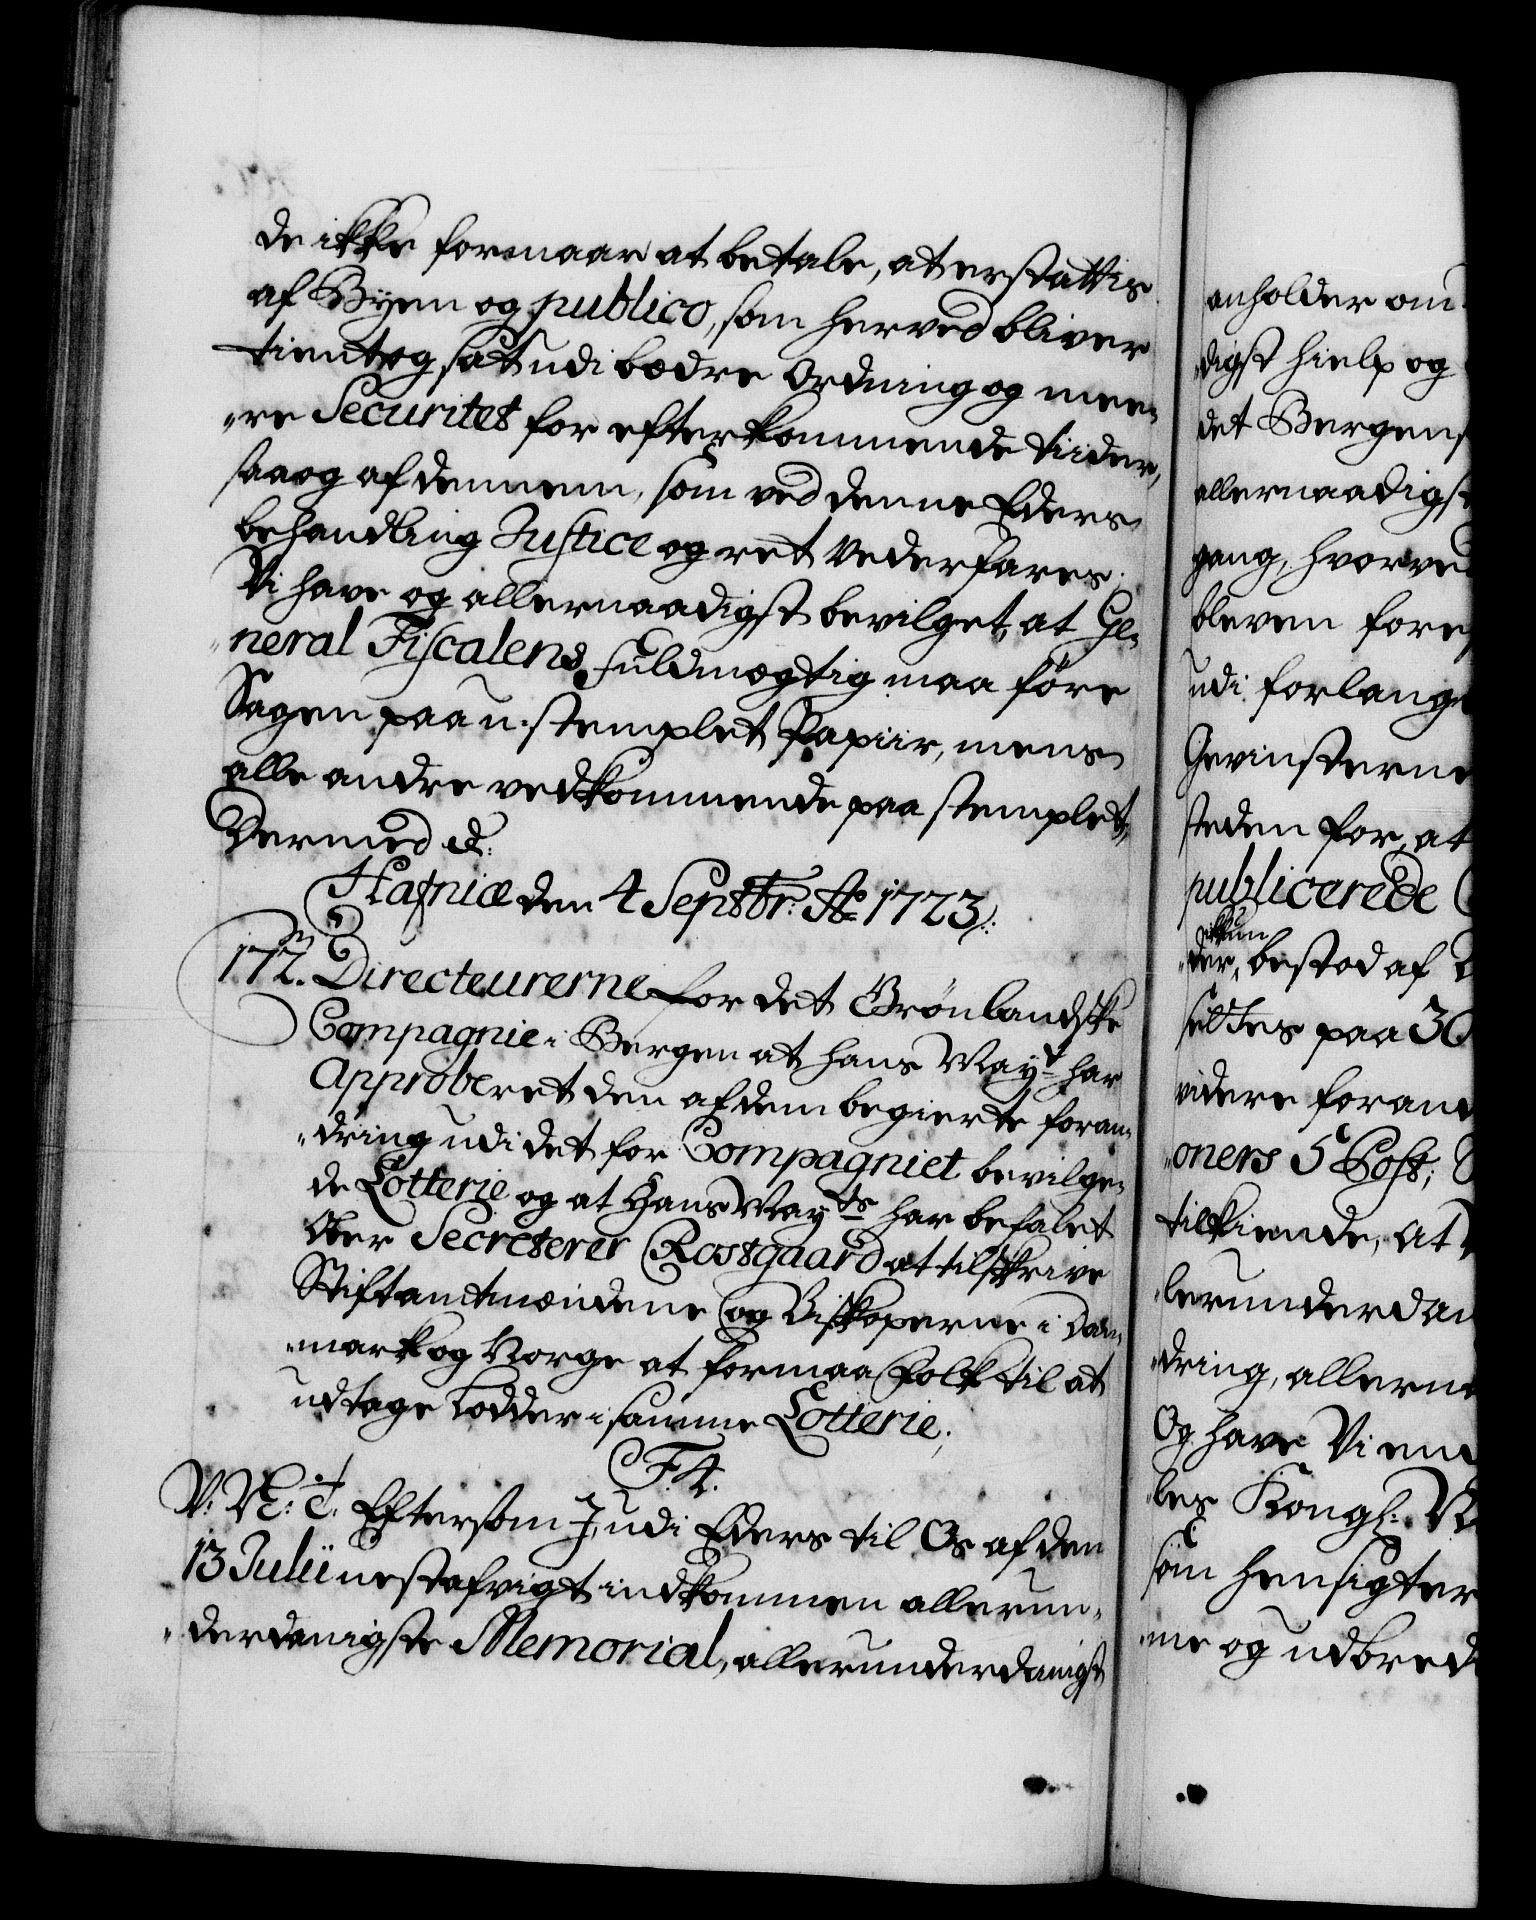 de ikke formaar at betale, at erstattis
af Byen og publico, som herved bliver
tient og sat udi bedre Ordning og mee„
„re Securitet for efterkommende tiider,
saa og af dennem, som ved denne Eders
behandling Justice og ret vederfares.
Vi have og allernaadigst bevilget, at Ge„
„neral Fiscalens fuldmægtig maa føre
Sagen paa u-stemplet Papiir, mens
alle andre vedkommende paa stemplet,
Dermed &:
Hafniæ den 4 Septbr: Ao 1723.
172. Directeurerne for det Grønlandske
Compagnie i Bergen at hans Mayt har
Approberet den af dem begierte foran„
„dring udi det for Compagniet bevilge„
de Lotterie og at Hans Mayts har befalet
Ober Secreterer Rostgaard at tilskrive
Stiftamtmændene og Biskoperne i Dan„
„mark og Norge at formaa folk til at
udtage Lodder i samme Lotterie;
F. 4.
V: N: T: Eftersom I, udi Eders til Os af den
13 Julii nestafvigt indkommen allerun„
„derdanigste Memorial, allerunderdanigst
anholder om
„digst hielp og
det Bergens
allernaadigst
gang, hvorved
bleven fore
udi forlange
Gevinsterne
steden for, at
publicerede
ikkun
„der, bestod af
settes paa 30
videre forand
„oners 5 Post;
tilkiende, at
„lerunderdan
„dring, allerna
Og have Vi
„les Kongl: 
som hensigter
„me og udbrede